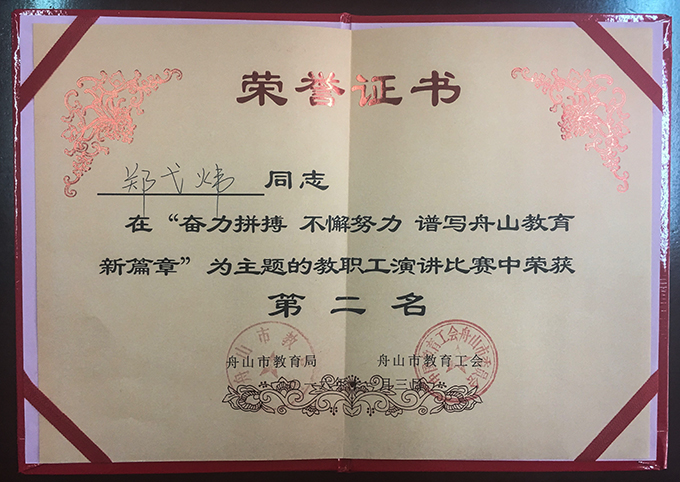 荣誉证书
郑弋炜 同志
在“奋力拼搏 不懈努力 谱写舟山教育
新篇章”为主题的教职工演讲比赛中荣获
第二名
舟山市教育局 舟山市教育工会